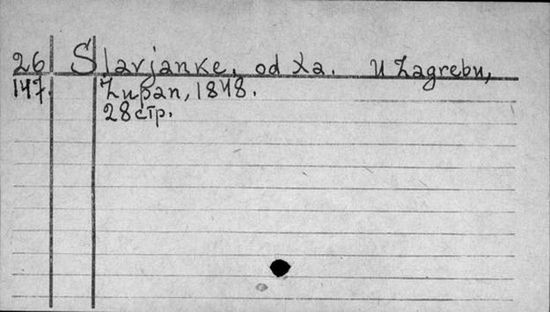 26 Slavjanke, od Xa. U Zagrebu,
147. Župan, 1848.
28 стр.